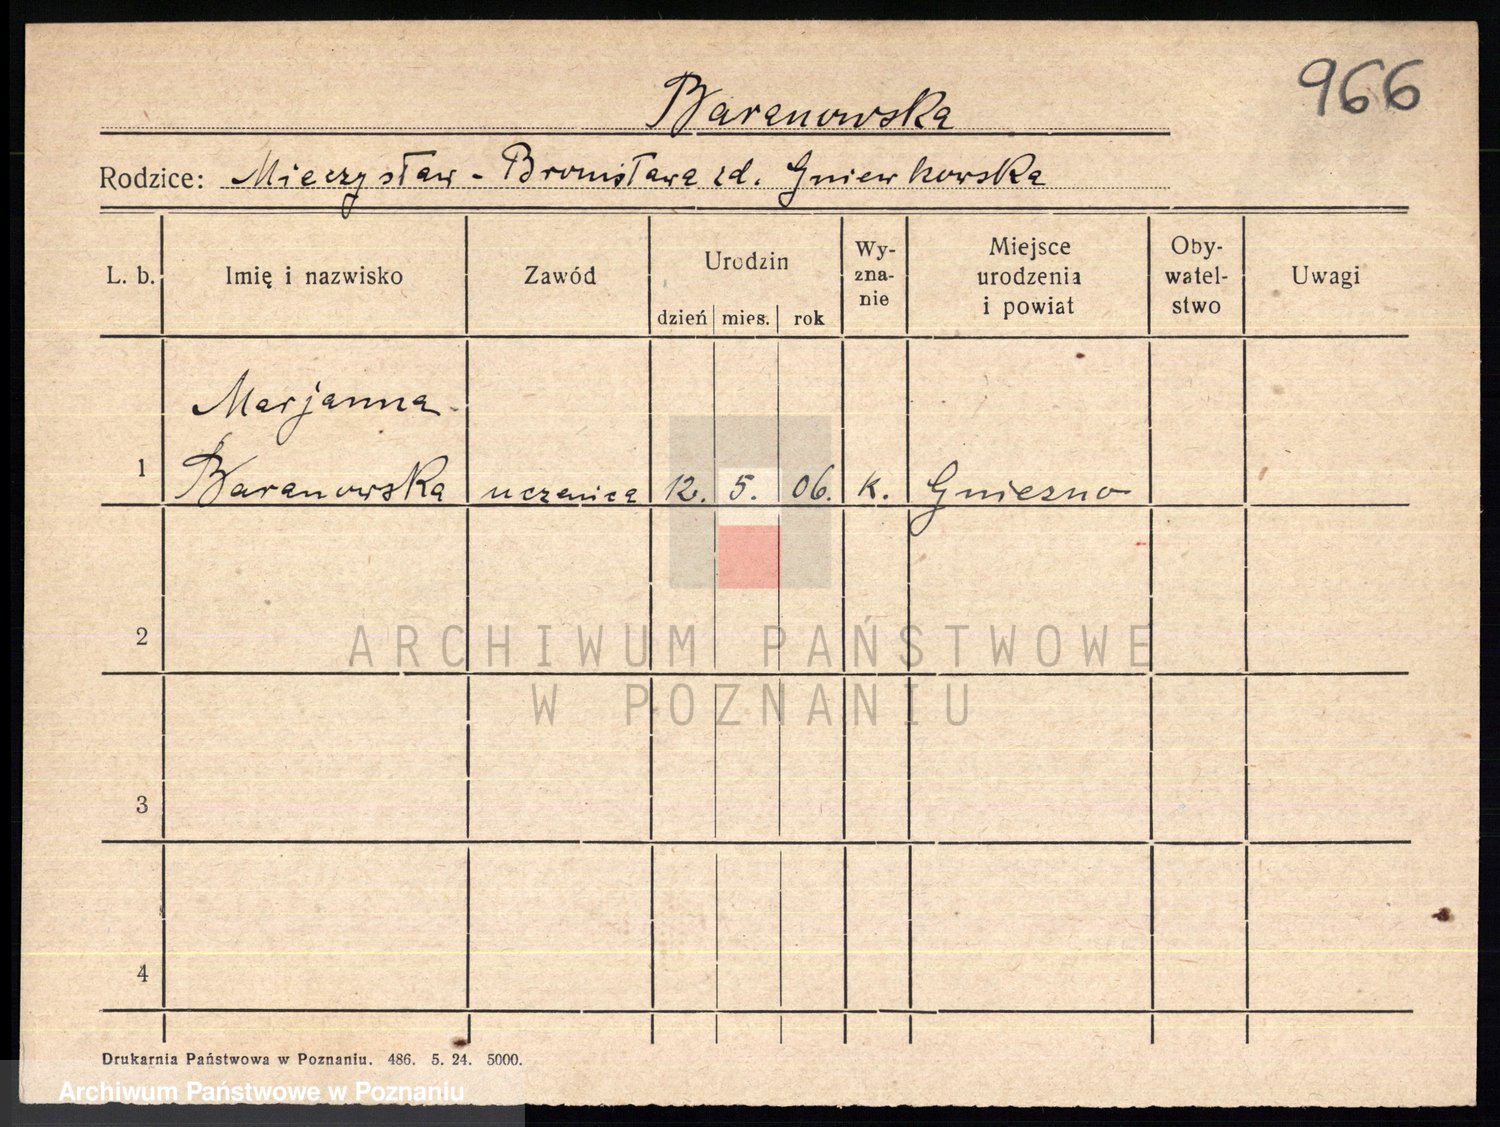 966
Baranowska
Rodzice: Mieczysław - Bronisława zd. Gniewkowska
L. b. Imię i nazwisko Zawód Urodzin Wy-zna-nie Miejsce urodzenia i powiat Oby-watel-stwo Uwagi
dzień mies. rok
Marjanna
1 Baranowska uczenica 12. 5. 06. k. Gniezno
2
ARCHIWUM PAŃSTWOWE
W POZNANIU
3
4
Drukarnia Państwowa w Poznaniu. 486. 5. 24. 5000.
Archiwum Państwowe w Poznaniu